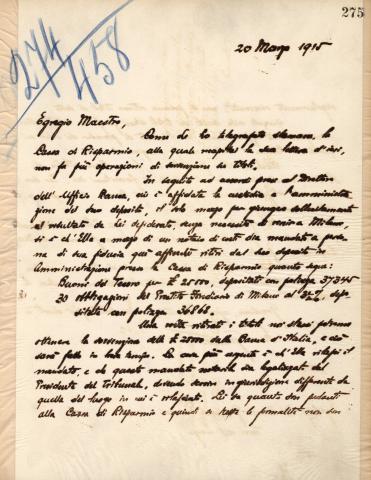 275
274
458
20 Marzo 1915
Egregio Maestro,
Come le ho telegrafato stamane, la
Cassa di Risparmio, alla quale recapitai la sua lettera d'ieri,
non fa più operazioni di sovvenzione su titoli.
In seguito ad accordi presi col Direttore
dell' Ufficio Rauca, cui è affidata la custodia e l'amministra
zione del suo deposito, il solo mezzo per giungere
al resultato da Lei desiderato, senza necessità di venire a Milano,
si è ch'Ella a mezzo di un notaio di costì dia mandato a perso
na di sua fiducia
Amministrazione presso la Cassa di Risparmio quanto segue:
Buoni del Tesoro per £ 25000, depositati con polizza 37345
30 obbligazioni del Prestito Fondiario di Milano al 3½%, depo
sitate con polizza 36868.
Una volta ritirati i titoli noi stessi potremo
ottenere la sovvenzione delle £ 25000 dalla Banca d'Italia, e ciò
sarà fatto in breve tempo. La cosa più urgente è ch'Ella rilasci il
mandato, e che questo mandato notarile sia legalizzato dal
Presidente del Tribunale, dovendo servire in giurisdizione differente da
quella del luogo in cui è rilasciato.
alla Cassa di Risparmio e quindi se tutte le formalità non son